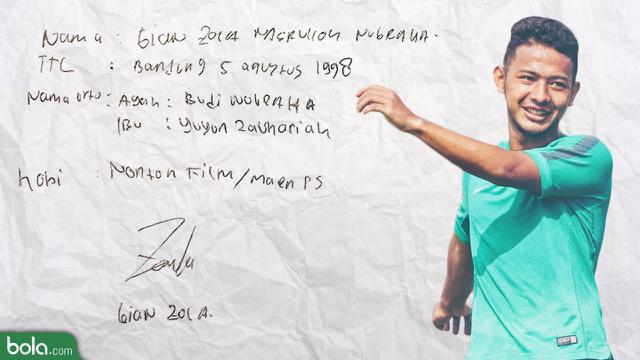 Nama : GIAN ZOLA NASRULLOH NUGRAHA.
TTL : BANDUNG 5 AGUSTUS 1998
Nama ortu : Ayah : Budi NUGRAHA
IBU : Yuyun Zachariah
hobi : NONTON FILM/Maen PS
GIAN ZOLA.
bola.com